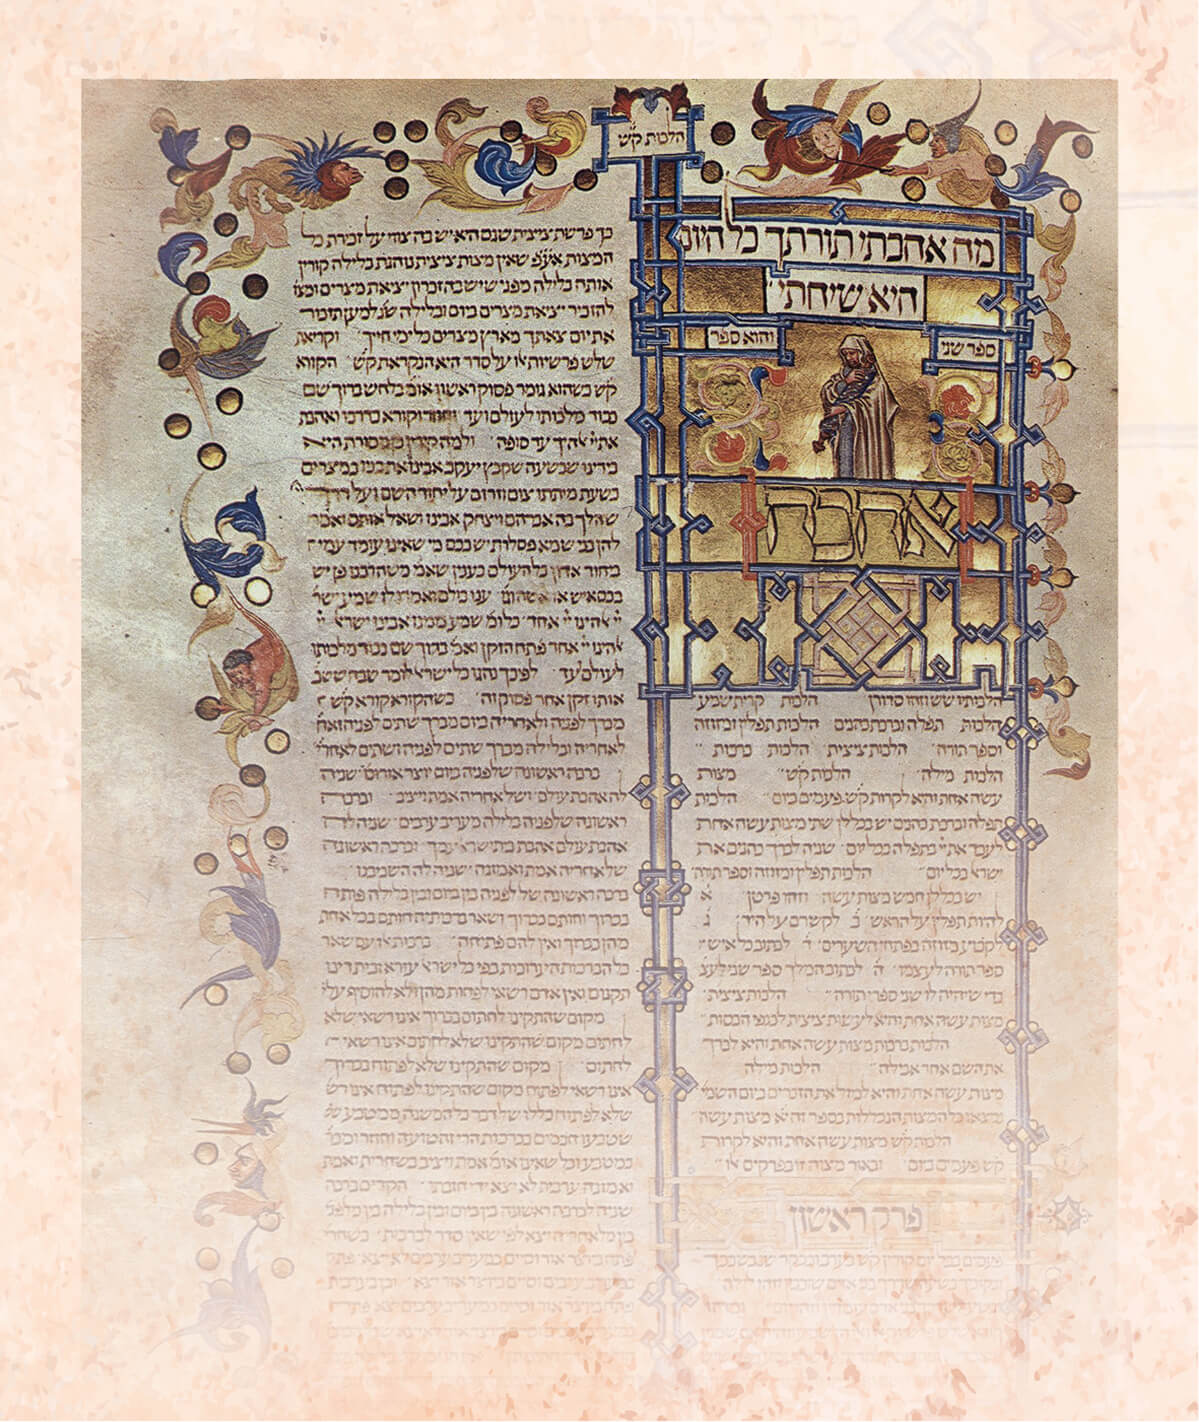 הלכות ק״ש
מה אהבתי תורתך כל היום
היא שיחתי
ספר שני
והוא ספר
אהבה
הלכותיו שש וזהו סדורן הלכות קרית שמע
הלכות תפלה וברכת כהנים הלכות תפלין ומזוזה
וספר תורה הלכות ציצית הלכות ברכות
הלכות מילה הלכות ק״ש מצות
עשה אחת והיא לקרות ק״ש פעמים ביום הלכות
תפלה וברכת כהנים יש בכללן שתי מצות עשה אחת
לעבד את יי׳ בתפלה בכל יום שניה לברך כהנים את
ישראל בכל יום הלכות תפלין ומזוזה וספר תורה
יש בכללן חמש מצות עשה וזהו פרטן א
להיות תפלין על הראש ב לקשרם על היד ג
לקבוע מזוזה בפתחי השערים ד לכתוב כל איש
ספר תורה לעצמו ה לכתוב המלך ספר שני לעצ
כדי שיהיה לו שני ספרי תורה הלכות ציצית
מצות עשה אחת והיא לעשות ציצית לכנפי הכסות
הלכות ברכות מצות עשה אחת והיא לברך
את השם אחר אכילה הלכות מילה
מצות עשה אחת והיא למול את הזכרים ביום השמיני
נמצאו כל המצות הנכללות בספר זה יא מצות עשה
הלכות ק״ש מצות עשה אחת והיא לקרות
ק״ש פעמים ביום ובאור מצוה זו בפרקים או
פרק ראשון
פעמים בכל יום קורין ק״ש בערב ובבקר שנ׳ בשכבך
ובקומך
כך פרשת ציצית שגם היא יש בה צווי על זכירת כל
המצות אע״פ שאין מצות ציצית נוהגת בלילה קורין
אותה בלילה מפני שיש בה זכרון יציאת מצרים ומצוה
להזכיר יציאת מצרים ביום ובלילה שנ׳ למען תזכור
את יום צאתך מארץ מצרים כל ימי חייך וקריאת
שלש פרשיות אלו על סדר היא הנקראת ק״ש הקורא
ק״ש כשהוא גומר פסוק ראשון אומ׳ בלחש ברוך שם
כבוד מלכותו לעולם ועד וחוזר וקורא כדרכו ואהבת
את יי׳ אלהיך עד סופה ולמה קורין כן מסורת היא
בידינו שבשעה שקבץ יעקב אבינו את בניו במצרים
בשעת מיתתו צום וזרזם על יחוד השם ועל דרך יי
שהלך בה אברהם ויצחק אבינו ושאל אותם ואמר
להן בני שמא פסלות יש בכם מי שאינו עומד עמי
ביחוד אדון כל העולם כענין שאמ׳ משה רבנו פן יש
בכם איש או אשה וגו׳ ענו כולם ואמרו לו שמע ישראל
יי׳ אלהינו יי׳ אחד כלומ׳ שמע ממנו אבינו ישראל יי׳
אלהינו יי׳ אחד פתח הזקן ואמ׳ ברוך שם כבוד מלכותו
לעולם ועד לפיכך נהגו כל ישראל לומר שבח ששבח
אותו זקן אחר פסוק זה כשהקורא קורא ק״ש
מברך לפניה ולאחריה ביום מברך שתים לפניה ואחת
לאחריה ובלילה מברך שתים לפניה ושתים לאחריה
ברכה ראשונה שלפניה ביום יוצר אור וכו׳ שניה
לה אהבת עולם ושלאחריה אמת ויציב וברכה
ראשונה שלפניה בלילה מעריב ערבים שניה לה
אהבת עולם אהבת בית ישראל עמך וברכה ראשונה
שלאחריה אמת ואמונה שניה לה השכיבנו
ברכה ראשונה שלפניה בין ביום ובין בלילה פותח
בברוך וחותם בברוך ושאר ברכותיה חותם בכל אחת
מהן בברוך ואין להם פתיחה ברכות אלו עם שאר
כל הברכות הערוכות בפי כל ישראל עזרא ובית דינו
תקנום ואין אדם רשאי לפחות מהן ולא להוסיף עליהן
מקום שהתקינו לחתום בברוך אינו רשאי שלא
לחתום מקום שהתקינו שלא לחתום אינו רשאי
לחתום מקום שהתקינו שלא לפתוח בברוך
אינו רשאי לפתוח מקום שהתקינו לפתוח אינו רש
שלא לפתוח כללו של דבר כל המשנה ממטבע
שטבעו חכמים בברכות הרי זה טועה וחוזר ומברך
במטבע וכל שאינו אומ׳ אמת ויציב בשחרית ואמת
ואמונה ערבית לא יצא ידי חובתו הקדים ברכה
שניה לברכה ראשונה בין ביום ובין בלילה בין מלפניה
בין מלאחריה יצא לפי שאין סדר לברכות בשחרית
פתח ביוצר אור וסיים במעריב ערבים לא יצא פתח